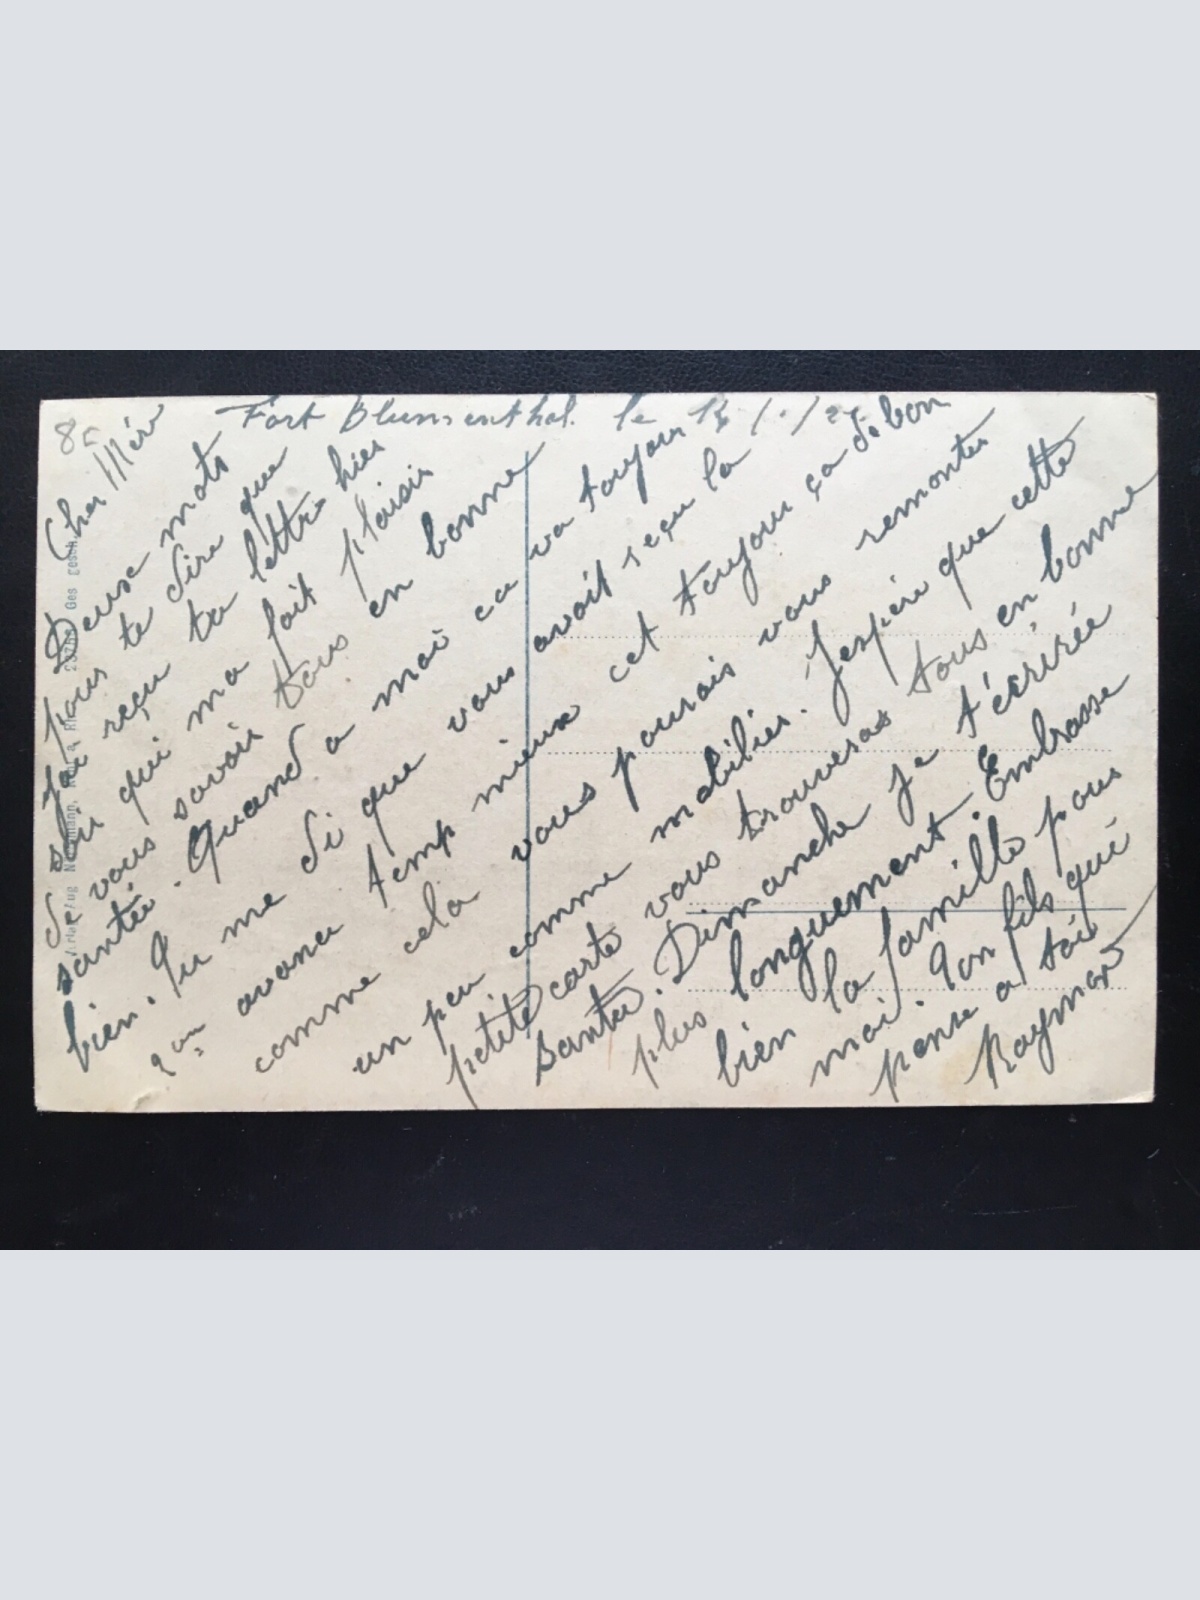 Fort Blumenthal. le
Cher Mère
Deuxe mots
pour te dire que
J'ai reçu ta lettre hier
soir qui ma fait plaisir
de vous savoir tous en bonne
santée. Quand a moi ca va toujour
bien. Tu me di que vous avoit reçu la
avance temp mieux cet toujour ça de bon
comme cela vous pourais vous remonter
un peu comme mobilier. J'espère que cette
petite carte vous trouveras tous en bonne
santée. Dimanche je t'écrirée
plus longuement. Embrasse
bien la famille pour
moi. Ton fils qui
pense a toi
Raymond